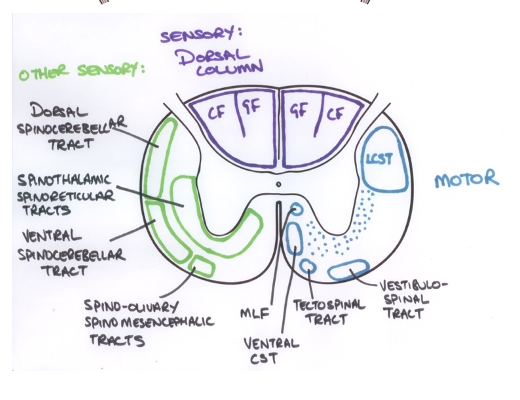 SENSORY:
DORSAL
COLUMN
OTHER SENSORY:
CF GF GF CF
DORSAL
SPINOCEREBELLAR
TRACT
LCST
MOTOR
SPINOTHALAMIC
SPINORETICULAR
TRACTS
VENTRAL
SPINOCEREBELLAR
TRACT
SPINO-OLIVARY
SPINOMESENCEPHALIC
TRACTS
MLF
VENTRAL
CST
TECTOSPINAL
TRACT
VESTIBULO-
SPINAL
TRACT